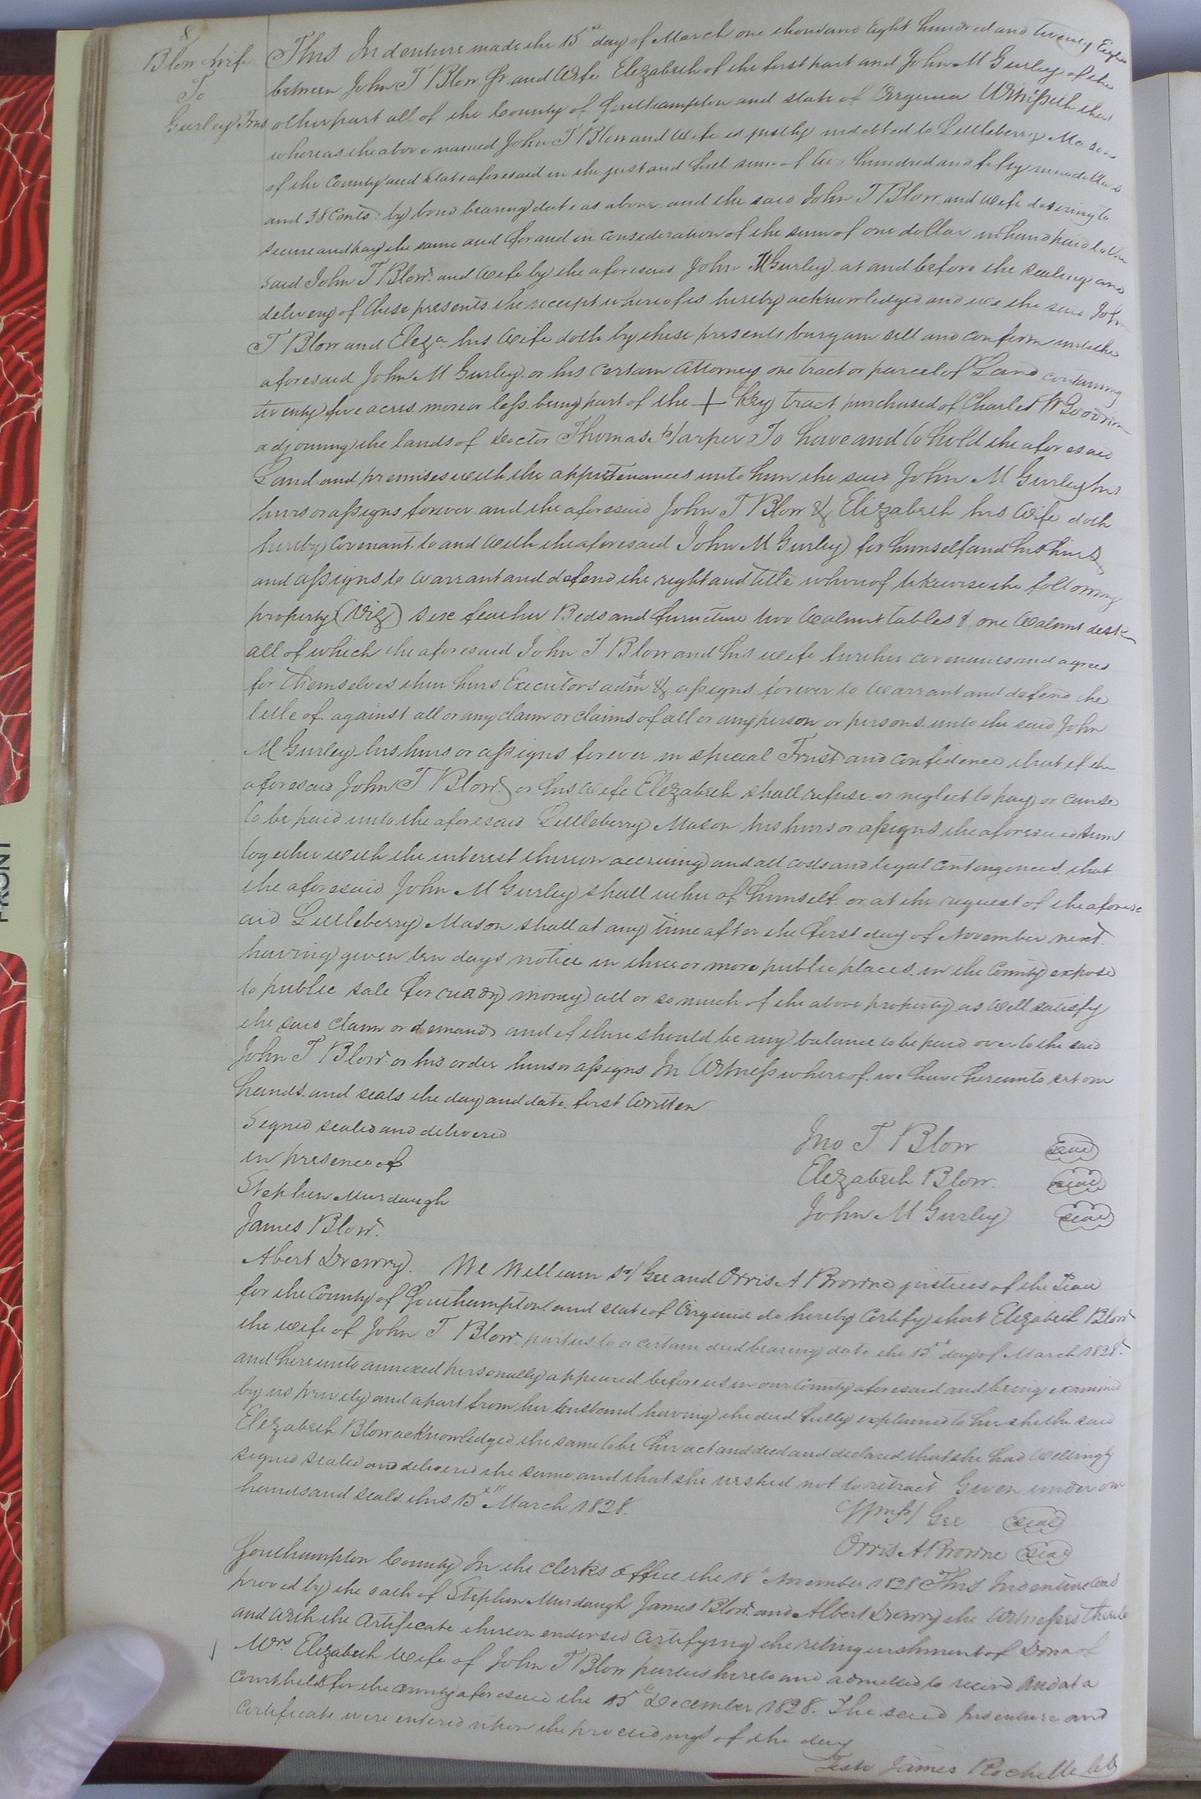 8
Blow & wife
To
Gurley Trus
This Indenture made the 15th day of March one thousand Eight hundred and twenty Eight
between John T Blow Jr. and Wife Elizabeth of the first part and John M Gurley of the
other part all of the County of Southampton and state of Virginia Witnesseth that
whereas the above named John T Blow and Wife is justly indebted to Littleberry Mason
of the County and state aforesaid in the just and full sum of two hundred and fifty nine dollars
and 38 Cents by bond bearing date as above and the said John T Blow and Wife desiring to
secure and pay the same and for and in consideration of the sum of one dollar in hand paid to the
said John T Blow and Wife by the aforesaid John M Gurley at and before the sealing and
delivery of these presents the receipt whereof is hereby acknowledged and we the said John
T Blow and Eliza his Wife doth by these presents bargain sell and confirm unto the
aforesaid John M Gurley or his certain attorney one tract or parcel of Land containing
twenty five acres more or less being part of the + Key tract purchased of Charles W Goodwin
adjoining the lands of Doctor Thomas Harper To have and to hold the aforesaid
Land and premises with the appurtenances unto him the said John M Gurley his
heirs or assigns forever and the aforesaid John T Blow & Elizabeth his Wife doth
hereby Covenant to and with the aforesaid John M Gurley for himself and his heirs
and assigns to warrant and defend the right and title whereof likewise the following
property (Viz) six feather Beds and furniture two Walnut tables & one Walnut desk
all of which the aforesaid John T Blow and his wife further covenants and agrees
for themselves their heirs Executors adm & assigns forever to warrant and defend the
title of against all or any claim or claims of all or any person or persons unto the said John
M Gurley his heirs or assigns forever in special Trust and confidence that if the
aforesaid John T Blow or his Wife Elizabeth shall refuse or neglect to pay or cause
to be paid unto the aforesaid Littleberry Mason his heirs or assigns the aforesaid sum
together with the interest thereon accruing and all costs and legal contengences that
the aforesaid John M Gurley shall either of himself or at the request of the afores
aid Littleberry Mason shall at any time after the first day of November next
having given ten days notice in three or more public places in the County expose
to public sale for ready money all or so much of the above property as will satisfy
the said claim or demand and if there should be any balance to be paid over to the said
John T Blow or his order heirs or assigns In Witness whereof we have hereunto set our
hands and seals the day and date first Written
Signed sealed and delivered
in presence of
Stephen Murdaugh
James Blow
Jno T Blow seal
Elizabeth Blow seal
John M Gurley seal
Albert Drewry. We William Gee and Orris A Browne justices of the Peace
for the County of Southampton and state of Virginia do hereby Certify that Elizabeth Blow
the wife of John T Blow parties to a certain deed bearing date the 15th day of March 1828
and hereunto annexed personally appeared before us in our County aforesaid and being examined
by us privily and apart from her husband having the deed fully explained to her she the said
Elizabeth Blow acknowledged the same to be her act and deed and declared that she had Willingly
signed sealed and delivered the same and that she wished not to retract Given under our
hands and seals this 15th March 1828
Gee seal
Orris A Browne seal
Southampton County In the clerks office the 18th November 1828 This Indenture was
proved by the oath of Stephen Murdaugh James Blow and Albert Drewry the Witnesses thereto
and with the Certificate thereon endorsed Certifying the relinquishment of Dower of
Mrs. Elizabeth Wife of John T Blow parties hereto and admitted to record And at a
Court held for the County aforesaid the 15th December 1828. The said Indenture and
Certificate were entered upon the proceedings of the day
Teste James Rochelle Clk
FRONT